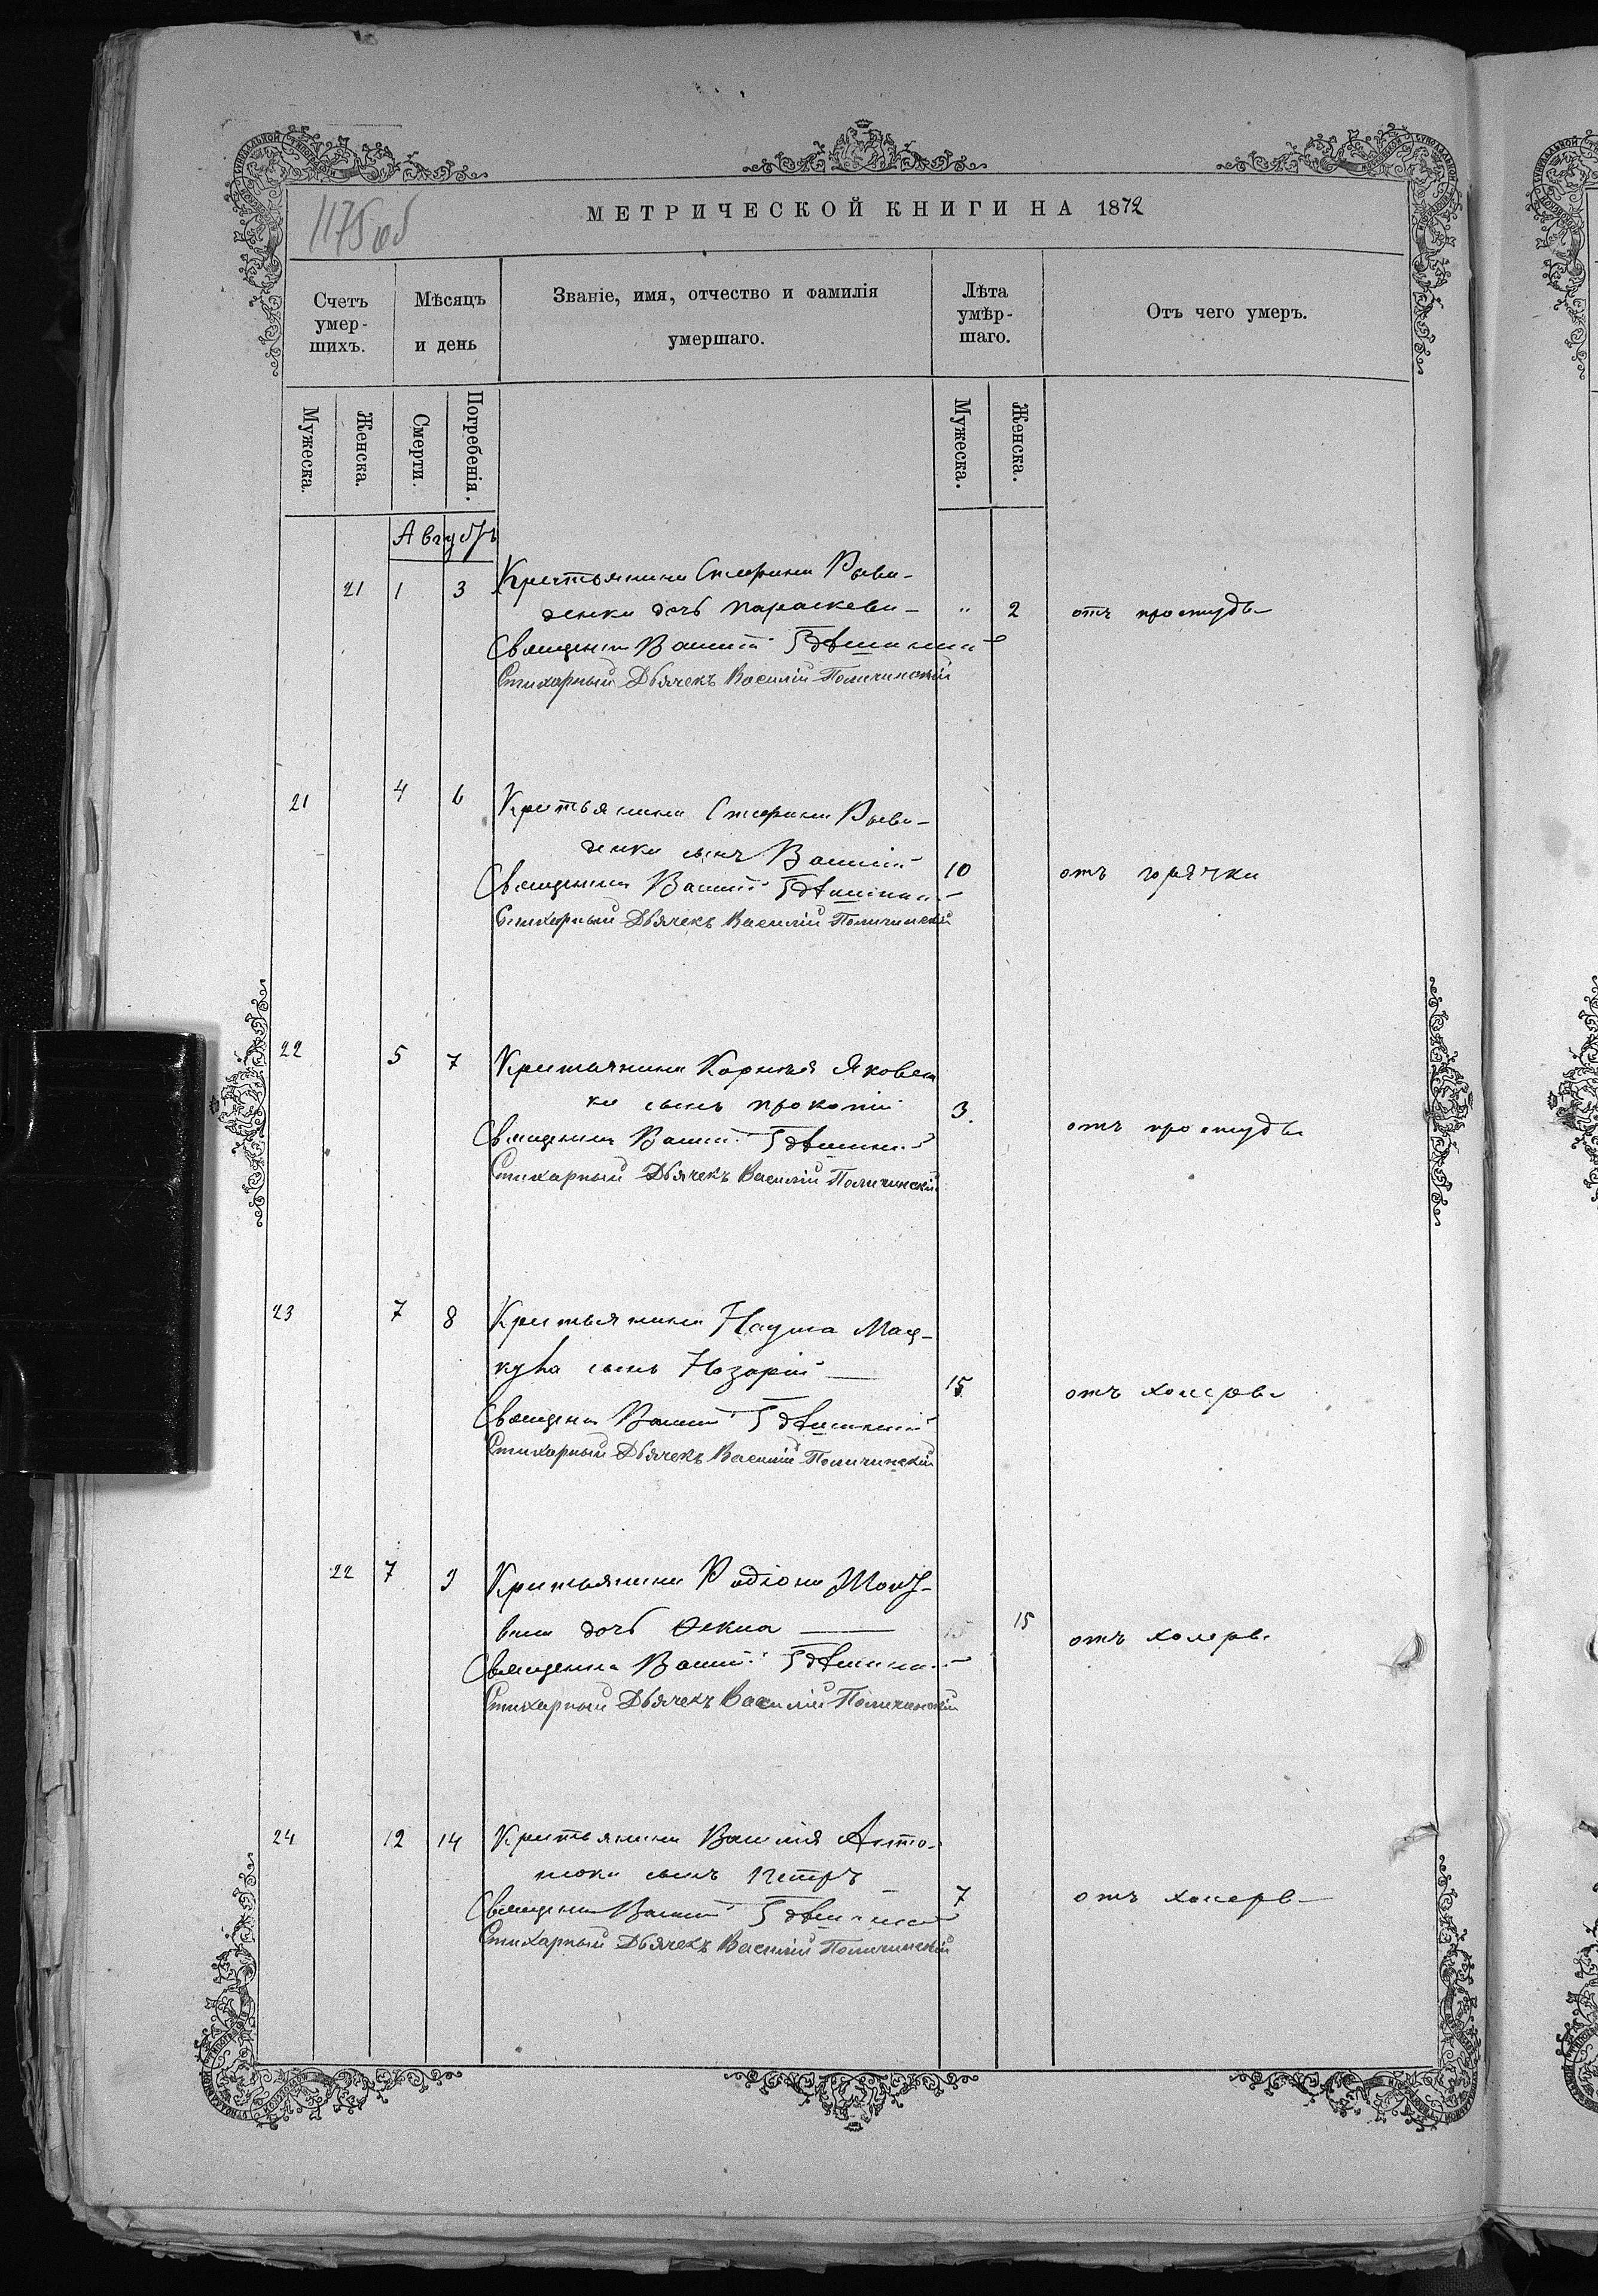 1175 об
МЕТРИЧЕСКОЙ КНИГИ НА 1872
Счетъ умер-шихъ.
Мѣсяцъ и день
Званіе, имя, отчество и фамилія умершаго.
Лѣта умѣр-шаго.
Отъ чего умеръ.
Мужеска.
Женска.
Смерти.
Погребенія.
Мужеска.
Женска.
Августъ
21 1 3 Крестьянина Стефана
денки дочь Параскева - " 2 отъ простуды
Священникъ Василій
Стихарный Дьячекъ Василій Поличинскій
21 4 6 Крестьянина Стефана
денки сынъ Василій 10 отъ горячки
Священникъ Василій
Стихарный Дьячекъ Василій Поличинскій
22 5 7 Крестьянина Корнѣя Яковен
ка сынъ Прокопій 3 отъ простуды
Священникъ Василій
Стихарный Дьячекъ Василій Поличинскій
23 7 8 Крестьянина Наума Мац-
куха сынъ Назарій 15 отъ холеры
Священникъ Василій
Стихарный Дьячекъ Василій Поличинскій
22 7 9 Крестьянина Родіона
дочь Ѳекла 15 отъ холеры
Священникъ Василій
Стихарный Дьячекъ Василій Поличинскій
24 12 14 Крестьянина Василія Анто-
нюка сынъ Петръ 7 отъ холеры
Священникъ Василій
Стихарный Дьячекъ Василій Поличинскій